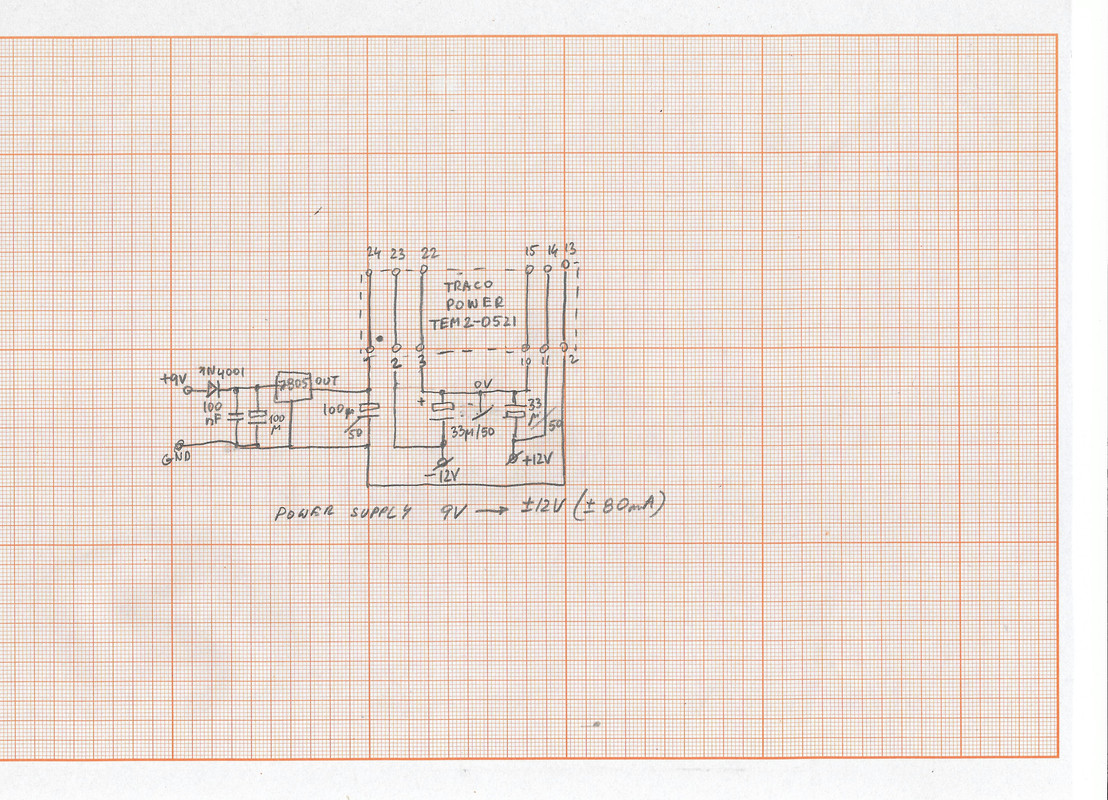 24 23 22 15 14 13
TRACO
POWER
TEM2-0521
1 2 3 10 11 12
+9V
1N4001
7805
OUT
100
nF
100
µ
100µ
50
+
33µ/50
0V
33
µ
50
GND
-12V
+12V
POWER SUPPLY 9V → ±12V (±80mA)